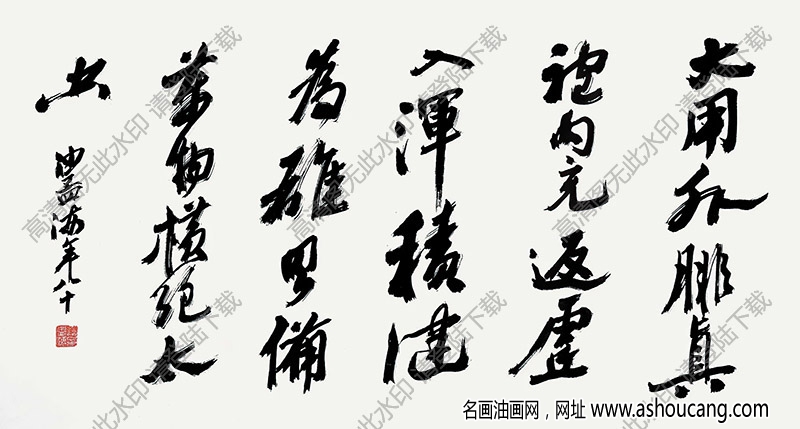 大用外腓真
體内充返虛
入渾積健
為雄具備
萬物橫絕太
空
沙孟海年八十
高清图无此水印 请登陆下载
高清图无此水印 请登陆下载
高清图无此水印 请登陆下载
高清图无此水印 请登陆下载
名画油画网，网址 www.ashoucang.com